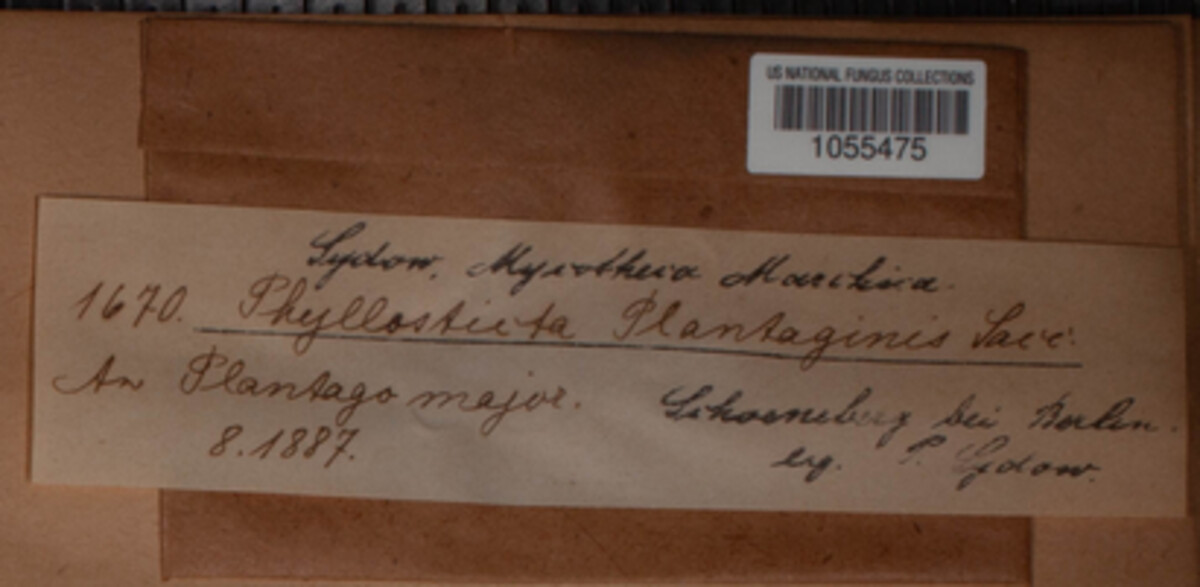 US NATIONAL FUNGUS COLLECTIONS
1055475
Sydow, Mycotheca Marchica.
1670. Phyllosticta Plantaginis Sacc.
An Plantago major. Schoeneberg bei Berlin.
8.1887. leg. P. Sydow.